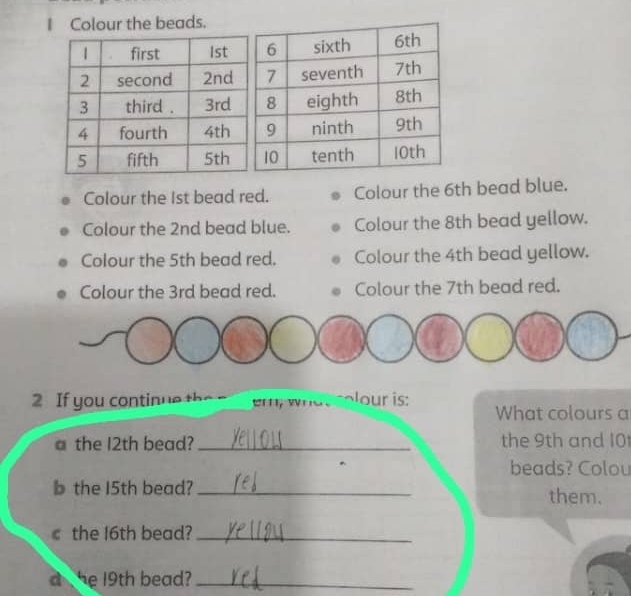 1 Colour the beads.
1 first 1st 6 sixth 6th
2 second 2nd 7 seventh 7th
3 third 3rd 8 eighth 8th
4 fourth 4th 9 ninth 9th
5 fifth 5th 10 tenth 10th
Colour the 1st bead red.
Colour the 2nd bead blue.
Colour the 5th bead red.
Colour the 3rd bead red.
Colour the 6th bead blue.
Colour the 8th bead yellow.
Colour the 4th bead yellow.
Colour the 7th bead red.
2 If you continue the ern, colour is:
a the 12th bead? yellow
b the 15th bead? red
c the 16th bead? yellow
d he 19th bead? red
What colours a
the 9th and 10t
beads? Colou
them.